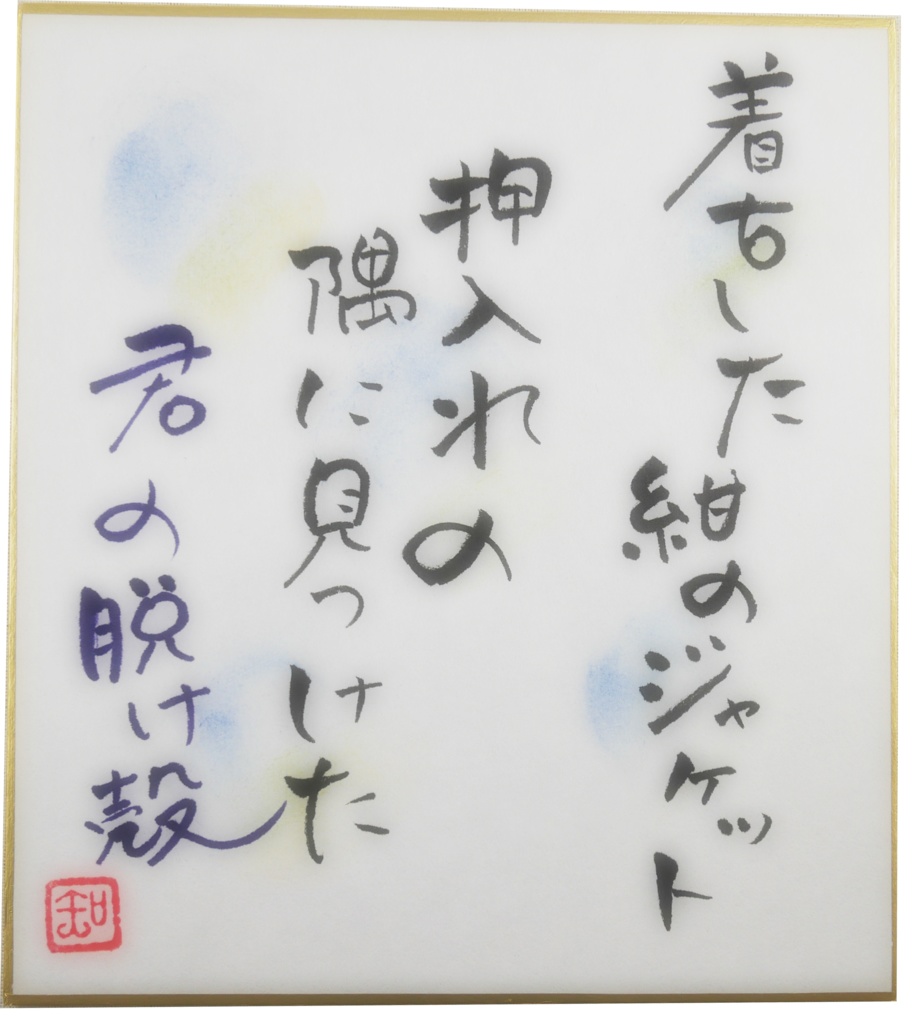 着古した
紺のジャケット
押入れの
隅に見つけた
君の脱け殻
知